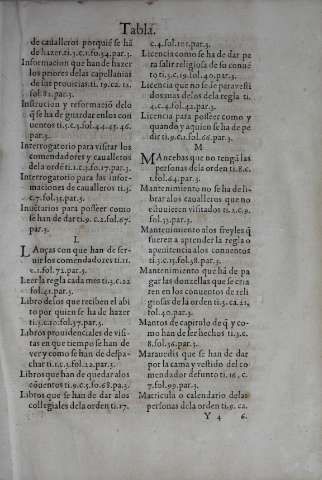 Tabla.
de caualleros porquiē se ha
de hazer.ti.3.c.1.fo.54.par.3.
Informacion que han de hazer
los priores delas capellanias
de las prouīcias.ti.19.ca.12.
fol.82.par.3.
Instrucion y reformació delo
q̄ se ha de guardar enlos con
uentos
par.3.
Interrogatorio para visitar los
comendadores y caualleros
dela ordē
Interrogatorio para las infor-
maciones de caualleros ti.3.
c.7.fol.55.par.3.
Inuētarios para posseer como
se han de dar ti.9.c.2.fol.67.
par.3.
L
LAnças con que han de ser-
uir los comendadores ti.11.
c.1.fol.72.par.3.
Leer la regla cada mes ti.3.c.22
fol.41.par.3.
Libro delos que reciben el abi
to por quien se ha de hazer
fol.57.par.3.
Libros prouidenciales de visi-
tas en que tiempo se han de
ver y como se han de despa-
char
Libros que han de quedar alos
cōuentos
Libros que se han de dar alos
collegiales dela orden ti.17.
c.4.fol.101.par.3.
Licencia como se ha de dar pa
ra salir religiosa de su conuē
to ti.3.c.19.fol.40.par.3.
Licencia que no se de para vesti
dos mas de los dela regla ti.
4.c.4.fol.42.par.3.
Licencia para posseer como y
quando y a quien se ha de pe
dir ti.9.c.1.fol.66.par.3.
M
MAncebas que no tengā las
personas dela orden ti.8.c.
1.fol.64.par.3.
Mantenimiento no se ha de li-
brar alos caualleros que no
estuuieren visitados ti.2.c.9.
fol.33.par.3.
Mantenimiento alos freyles q̄
fueren a aprender la regla o
a penitencia alos conuentos
ti.3.c.15.fol.38.par.3.
Mantenimiento que ha de pa-
gar las donzellas que se cria
ren en los conuentos de reli
giosas de la orden ti.3.ca.21.
fol.40.par.3.
Mantos de capitulo de q̄ y co-
mo han de ser hechos ti.3.c.
8.fol.36.par.3.
Marauedis que se han de dar
por la cama y vestido del co-
mendador defunto ti.16.c.
7.fol.99.par.3.
Matricula o calendario delas
personas dela orden ti.9.ca.
Y 4 6.